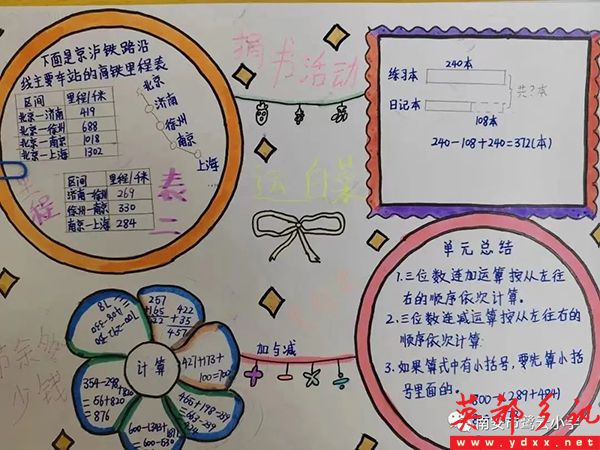 下面是京沪铁路沿
线主要车站的高铁里程表
区间 里程/千米
北京—济南 419
北京—徐州 688
北京—南京 1018
北京—上海 1302
北京
济南
徐州
南京
上海
区间 里程/千米
济南—徐州 269
徐州—南京 330
南京—上海 284
里程
表二
捐书活动
运白菜
240本
练习本
共?本
日记本
108本
240-108+240=372(本)
计算
257
+165
422
422
+35
457
427+173
100=700
354-298
=56+820
=876
加与减
单元总结
1.三位数连加运算按从左往
右的顺序依次计算。
2.三位数连减运算按从左往右的
顺序依次计算
3.如果算式中有小括号,要先算小括
号里面的。
800-(289+484)
英都乡讯
www.ydxx.net